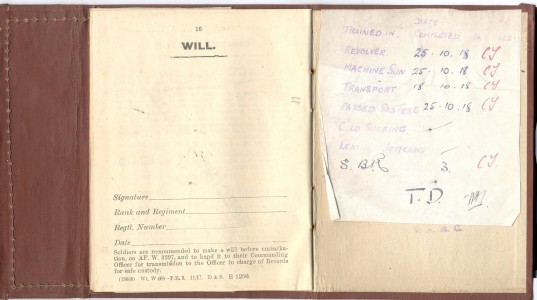 16
WILL.
Signature
Rank and Regiment
Regtl. Number
Date
Soldiers are recommended to make a will before embarka-
tion, on AF. W. 3297, and to hand it to their Commanding
Officer for transmission to the Officer in charge of Records
for safe custody.
D & S. E 1256.
DATE
TRAINED IN. COMPLETED
REVOLVER. 25-10.18 CJ
MACHINE GUN 25-10.18 CJ
TRANSPORT 18 10.18 CJ
PASSED GAS TEST 25-10.18 CJ
S.B.R 3. CJ
T.D.